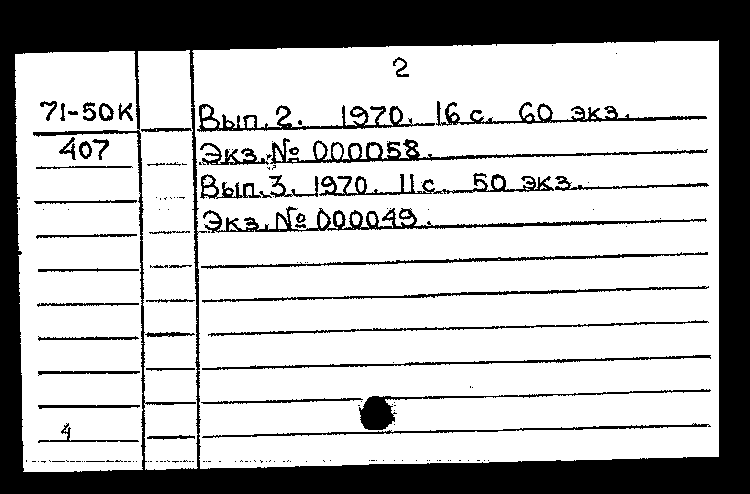 2
71-50К Вып. 2. 1970. 16 с. 60 экз.
407 Экз. № 000058.
Вып. 3. 1970. 11 с. 50 экз.
Экз. № 000049.
4